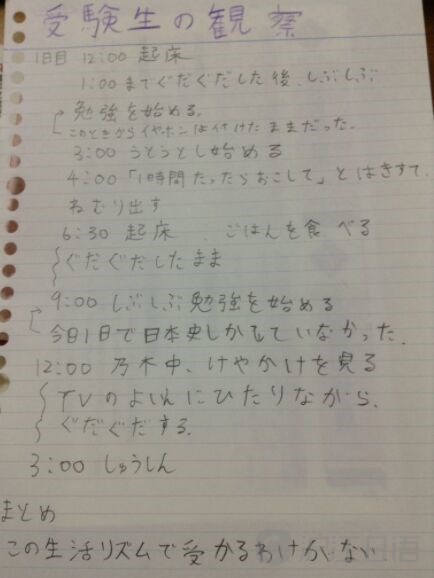 受験生の観察
1日目 12:00 起床
1:00までぐだぐだした後、しぶしぶ
勉強を始める。
このときからイヤホンは付けたままだった。
3:00 うとうとし始める
4:00 「1時間たったらおこして」とはきすて、
ねむり出す
6:30 起床 ごはんを食べる
ぐだぐだしたまま
9:00 しぶしぶ勉強を始める
今日1日で日本史しかしていなかった。
12:00 乃木中、けやかけを見る
TVのよいんにひたりながら、
ぐだぐだする。
3:00 しゅうしん
まとめ
この生活リズムで受かるわけがない